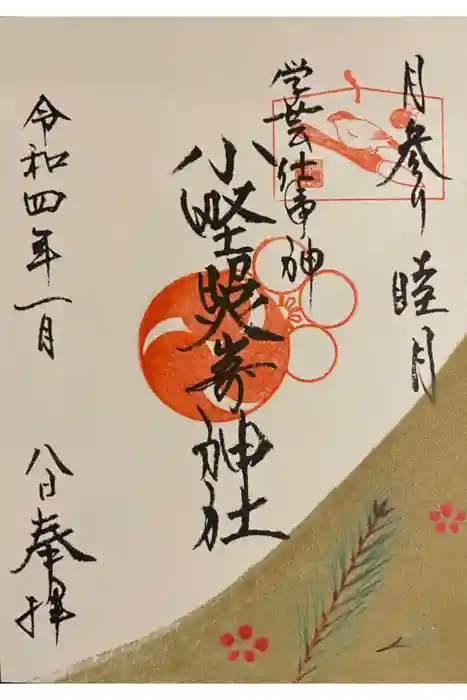 月参り 睦月
学芸仕事神
小野照嵜神社
令和四年一月
八日奉拝